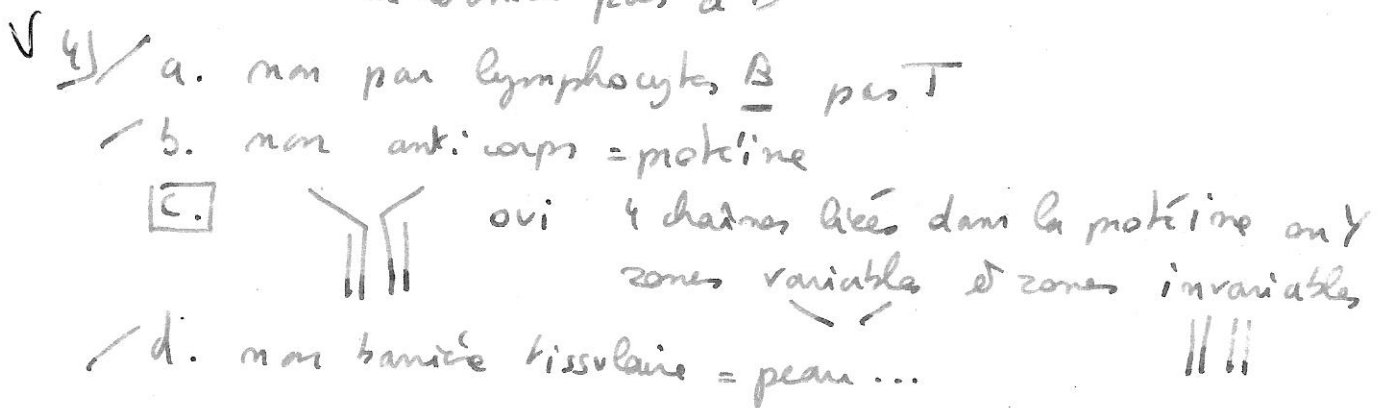 pas à
√ 4)/ a. non par lymphocytes B pas T
b. non anticorps = protéine
c. oui 4 chaînes liées dans la protéine en Y
zones variables et zones invariables
d. non barrière tissulaire = peau ...